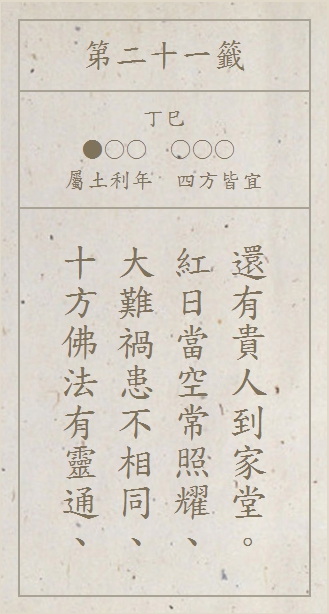 第二十一籤
丁巳
●○○ ○○○
屬土利年 四方皆宜
十方佛法有靈通、
大難禍患不相同、
紅日當空常照耀、
還有貴人到家堂。